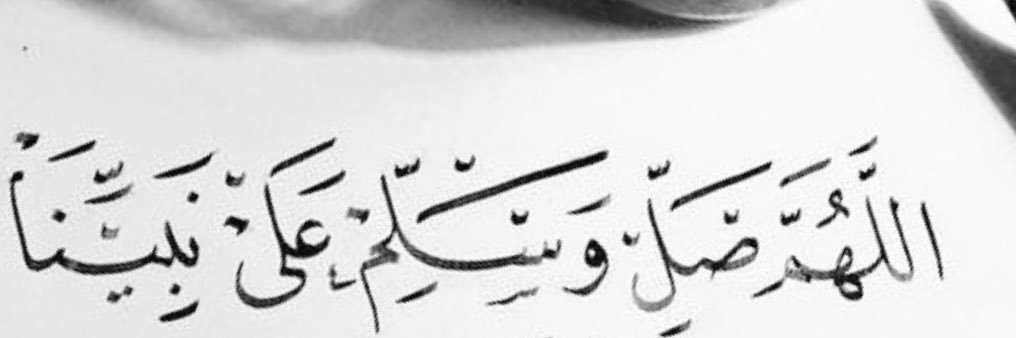 اللَّهُمَّ صَلِّ وَسَلِّمْ عَلَى نَبِيِّنَا